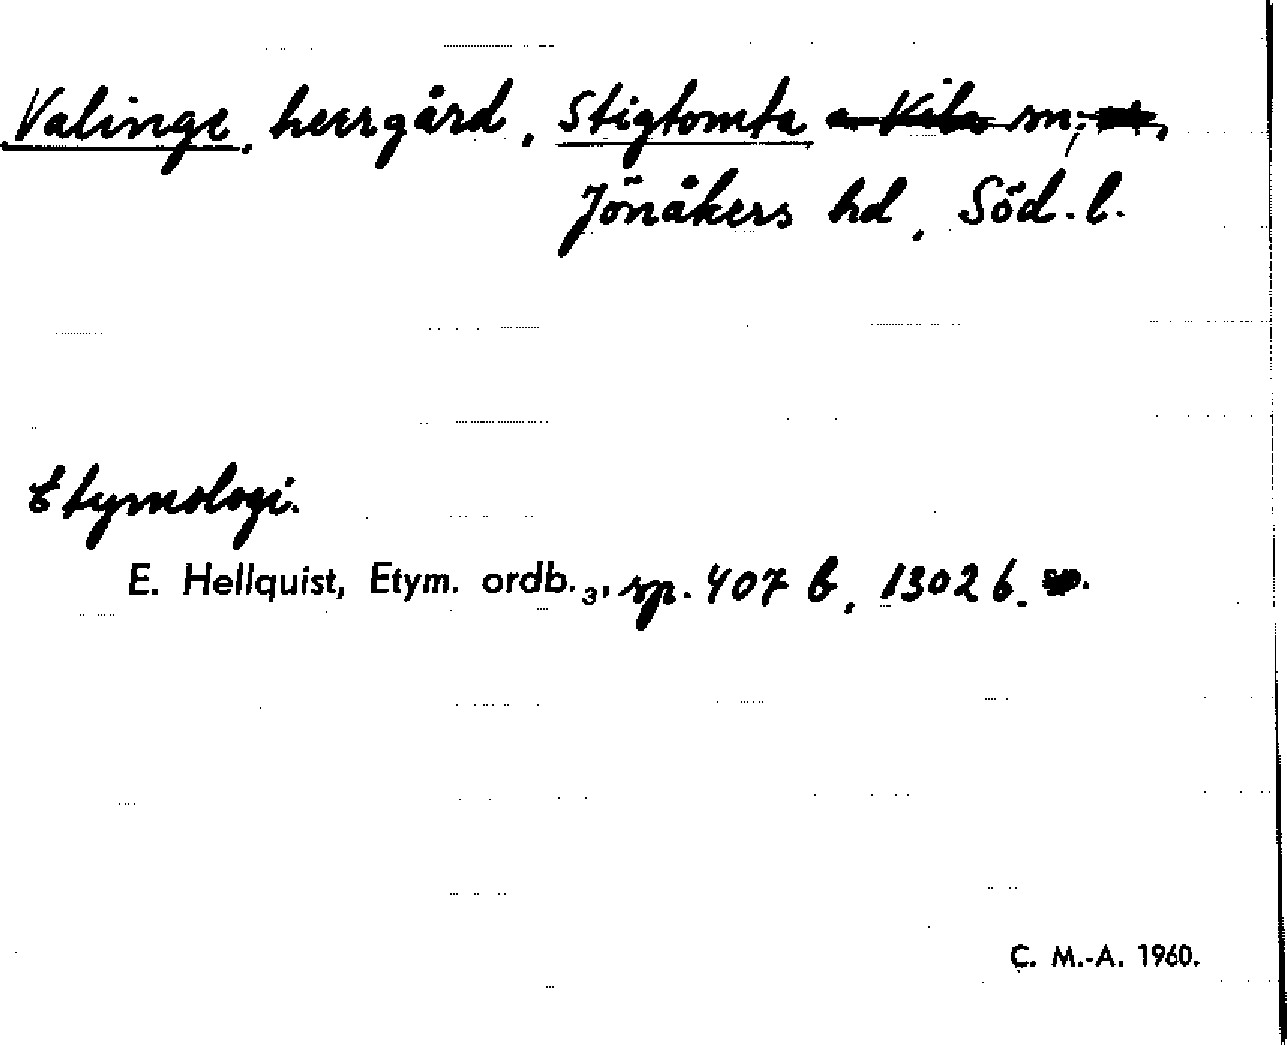 Valinge, herrgård, Stigtomta o. Kila sn,
Jönåkers hd, Söd. l.
Etymologi.
E. Hellquist, Etym. ordb.3, sp. 407 b, 1302 b.
C. M.-A. 1960.